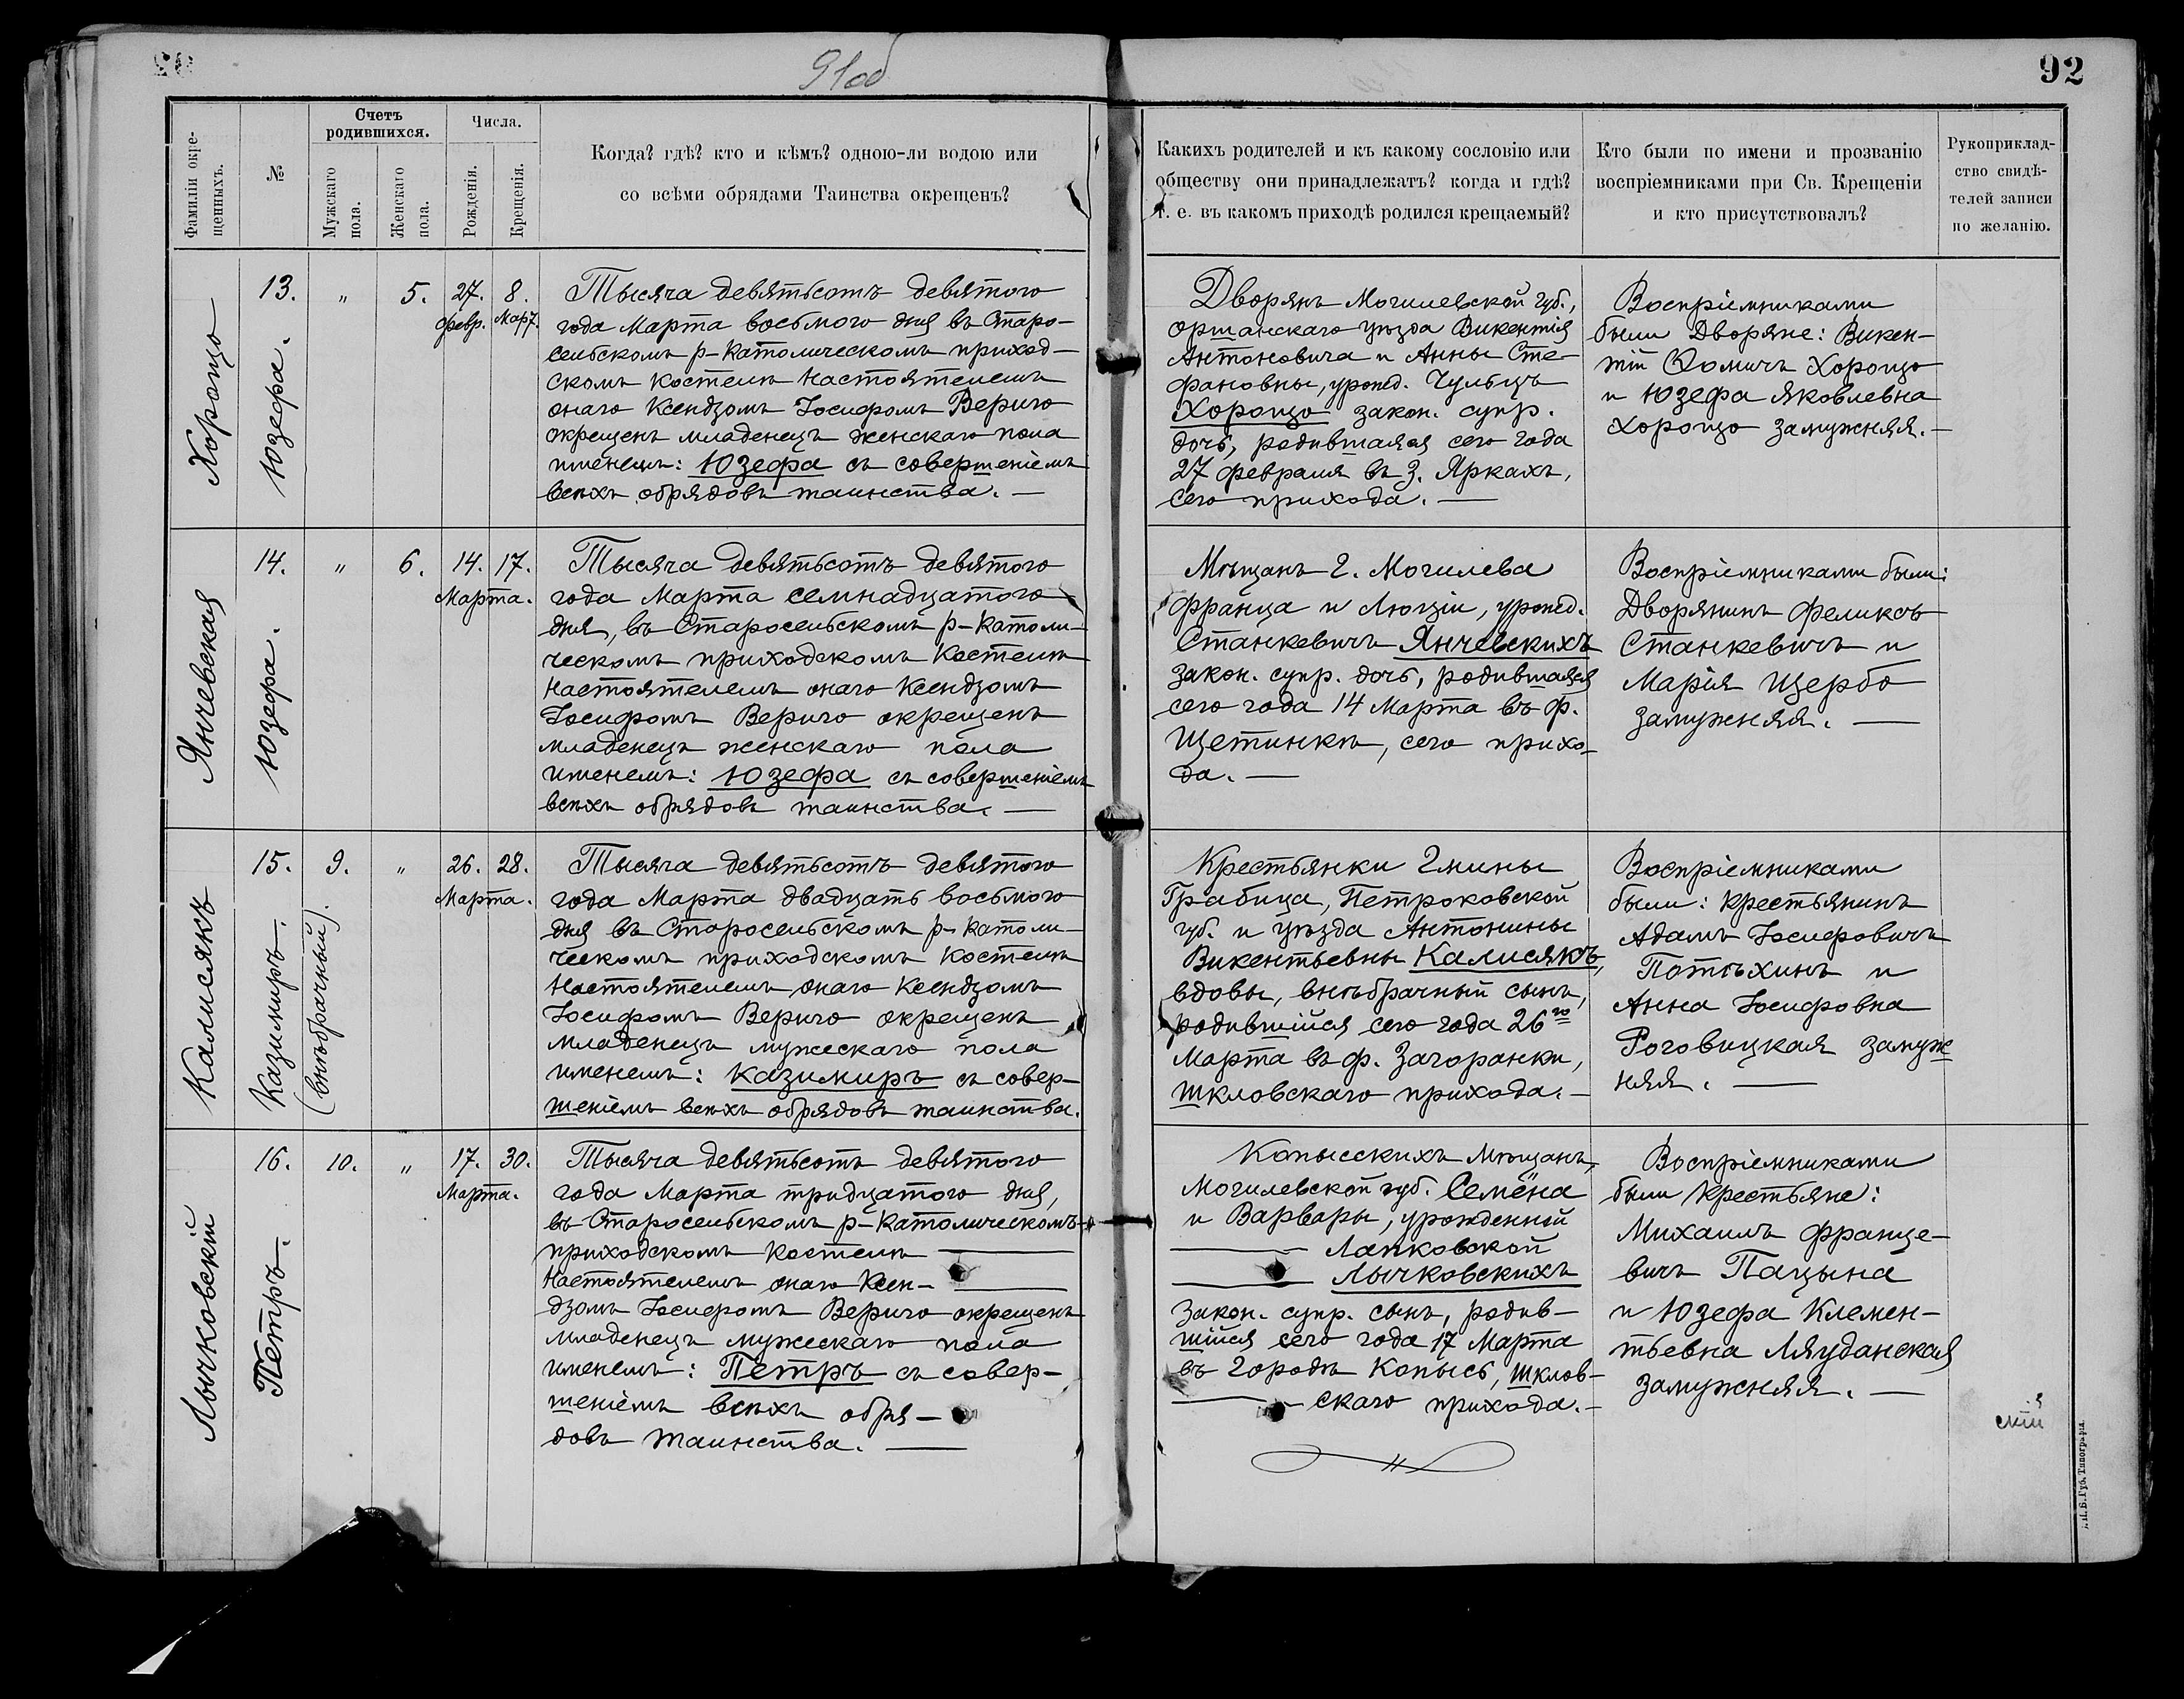 91об
92
Фамиліи окре-
щенныхъ.
№
Счетъ
родившихся.
Мужскаго
пола.
Женскаго
пола.
Числа.
Рожденія.
Крещенія.
Когда? гдѣ? кто и кѣмъ? одною-ли водою или
со всѣми обрядами Таинства окрещенъ?
Какихъ родителей и къ какому сословію или
обществу они принадлежатъ? когда и гдѣ?
т. е. въ какомъ приходѣ родился крещаемый?
Кто были по имени и прозванію
воспріемниками при Св. Крещеніи
и кто присутствовалъ?
Рукоприклад-
ство свидѣ-
телей записи
по желанію.
Хорощо
13.
Юзефа.
"
5.
27.
февр.
8.
Март.
Тысяча девятьсотъ девятого
года Марта восьмого дня въ Старо-
сельскомъ р-католическомъ приход-
скомъ костелѣ Настоятелемъ
онаго Ксендзомъ Іосифомъ Вериго
окрещенъ младенецъ женскаго пола
именемъ: Юзефа съ совершеніемъ
всѣхъ обрядовъ таинства. —
Дворянъ Могилевской губ.,
оршанскаго уѣзда Викентія
Антоновича и Анны Сте-
фановны, урожд. Чульцъ
Хорощо закон. супр.
дочь, родившаяся сего года
27 февраля въ З. Яркахъ,
сего прихода. —
Воспріемниками
были Дворяне: Викен-
тій Ѳомичъ Хорощо
и Юзефа Яковлевна
Хорощо замужняя. —
Янчевская
14.
Юзефа.
"
6.
14. 17.
Марта.
Тысяча девятьсотъ девятого
года Марта семнадцатого
дня, въ Старосельскомъ р-католи-
ческомъ приходскомъ костелѣ
Настоятелемъ онаго Ксендзомъ
Іосифомъ Вериго окрещенъ
младенецъ женскаго пола
именемъ: Юзефа съ совершеніемъ
всѣхъ обрядовъ таинства. —
Мѣщанъ г. Могилева
Франца и Люціи, урожд.
Станкевичъ Янчевскихъ
закон. супр. дочь, родившаяся
сего года 14 Марта въ ф.
Щетинкѣ, сего прихо-
да. —
Воспріемниками были:
Дворянинъ Феликсъ
Станкевичъ и
Марія Щербо
замужняя. —
Калисякъ
15.
Казимиръ.
(внѣбрачный).
9.
"
26. 28.
Марта.
Тысяча девятьсотъ девятого
года Марта двадцать восьмого
дня въ Старосельскомъ р-католи-
ческомъ приходскомъ костелѣ
Настоятелемъ онаго Ксендзомъ
Іосифомъ Вериго окрещенъ
младенецъ мужескаго пола
именемъ: Казимиръ съ совер-
шеніемъ всѣхъ обрядовъ таинства.
Крестьянки гмины
Грабица, Петроковской
губ. и уѣзда Антонины
Викентьевны Калисякъ,
вдовы, внѣбрачный сынъ,
родившійся сего года 26го
Марта въ ф. Загоранки,
шкловскаго прихода. —
Воспріемниками
были: крестьянинъ
Адамъ Іосифовичъ
Потѣхинъ и
Анна Іосифовна
Роговицкая замуж
няя. —
Лычковскій
16.
Петръ.
10.
"
17. 30.
Марта.
Тысяча девятьсотъ девятого
года Марта тридцатого дня,
въ Старосельскомъ р-католическомъ
приходскомъ костелѣ —
Настоятелемъ онаго Ксен-
дзомъ Іосифомъ Вериго окрещенъ
младенецъ мужескаго пола
именемъ: Петръ съ совер-
шеніемъ всѣхъ обря-
довъ таинства. —
Копысскихъ мѣщанъ,
Могилевской губ. Семёна
и Варвары, урожденной
— Лапковской
— Лычковскихъ
закон. супр. сынъ, родив-
шійся сего года 17 Марта
въ городѣ Копысь, шклов-
— скаго прихода. —
Воспріемниками
были крестьяне:
Михаилъ Франце-
вичъ Пацына
и Юзефа Клемен-
тьевна Ляуданская
замужняя. —
скій
Губ. Типографія.